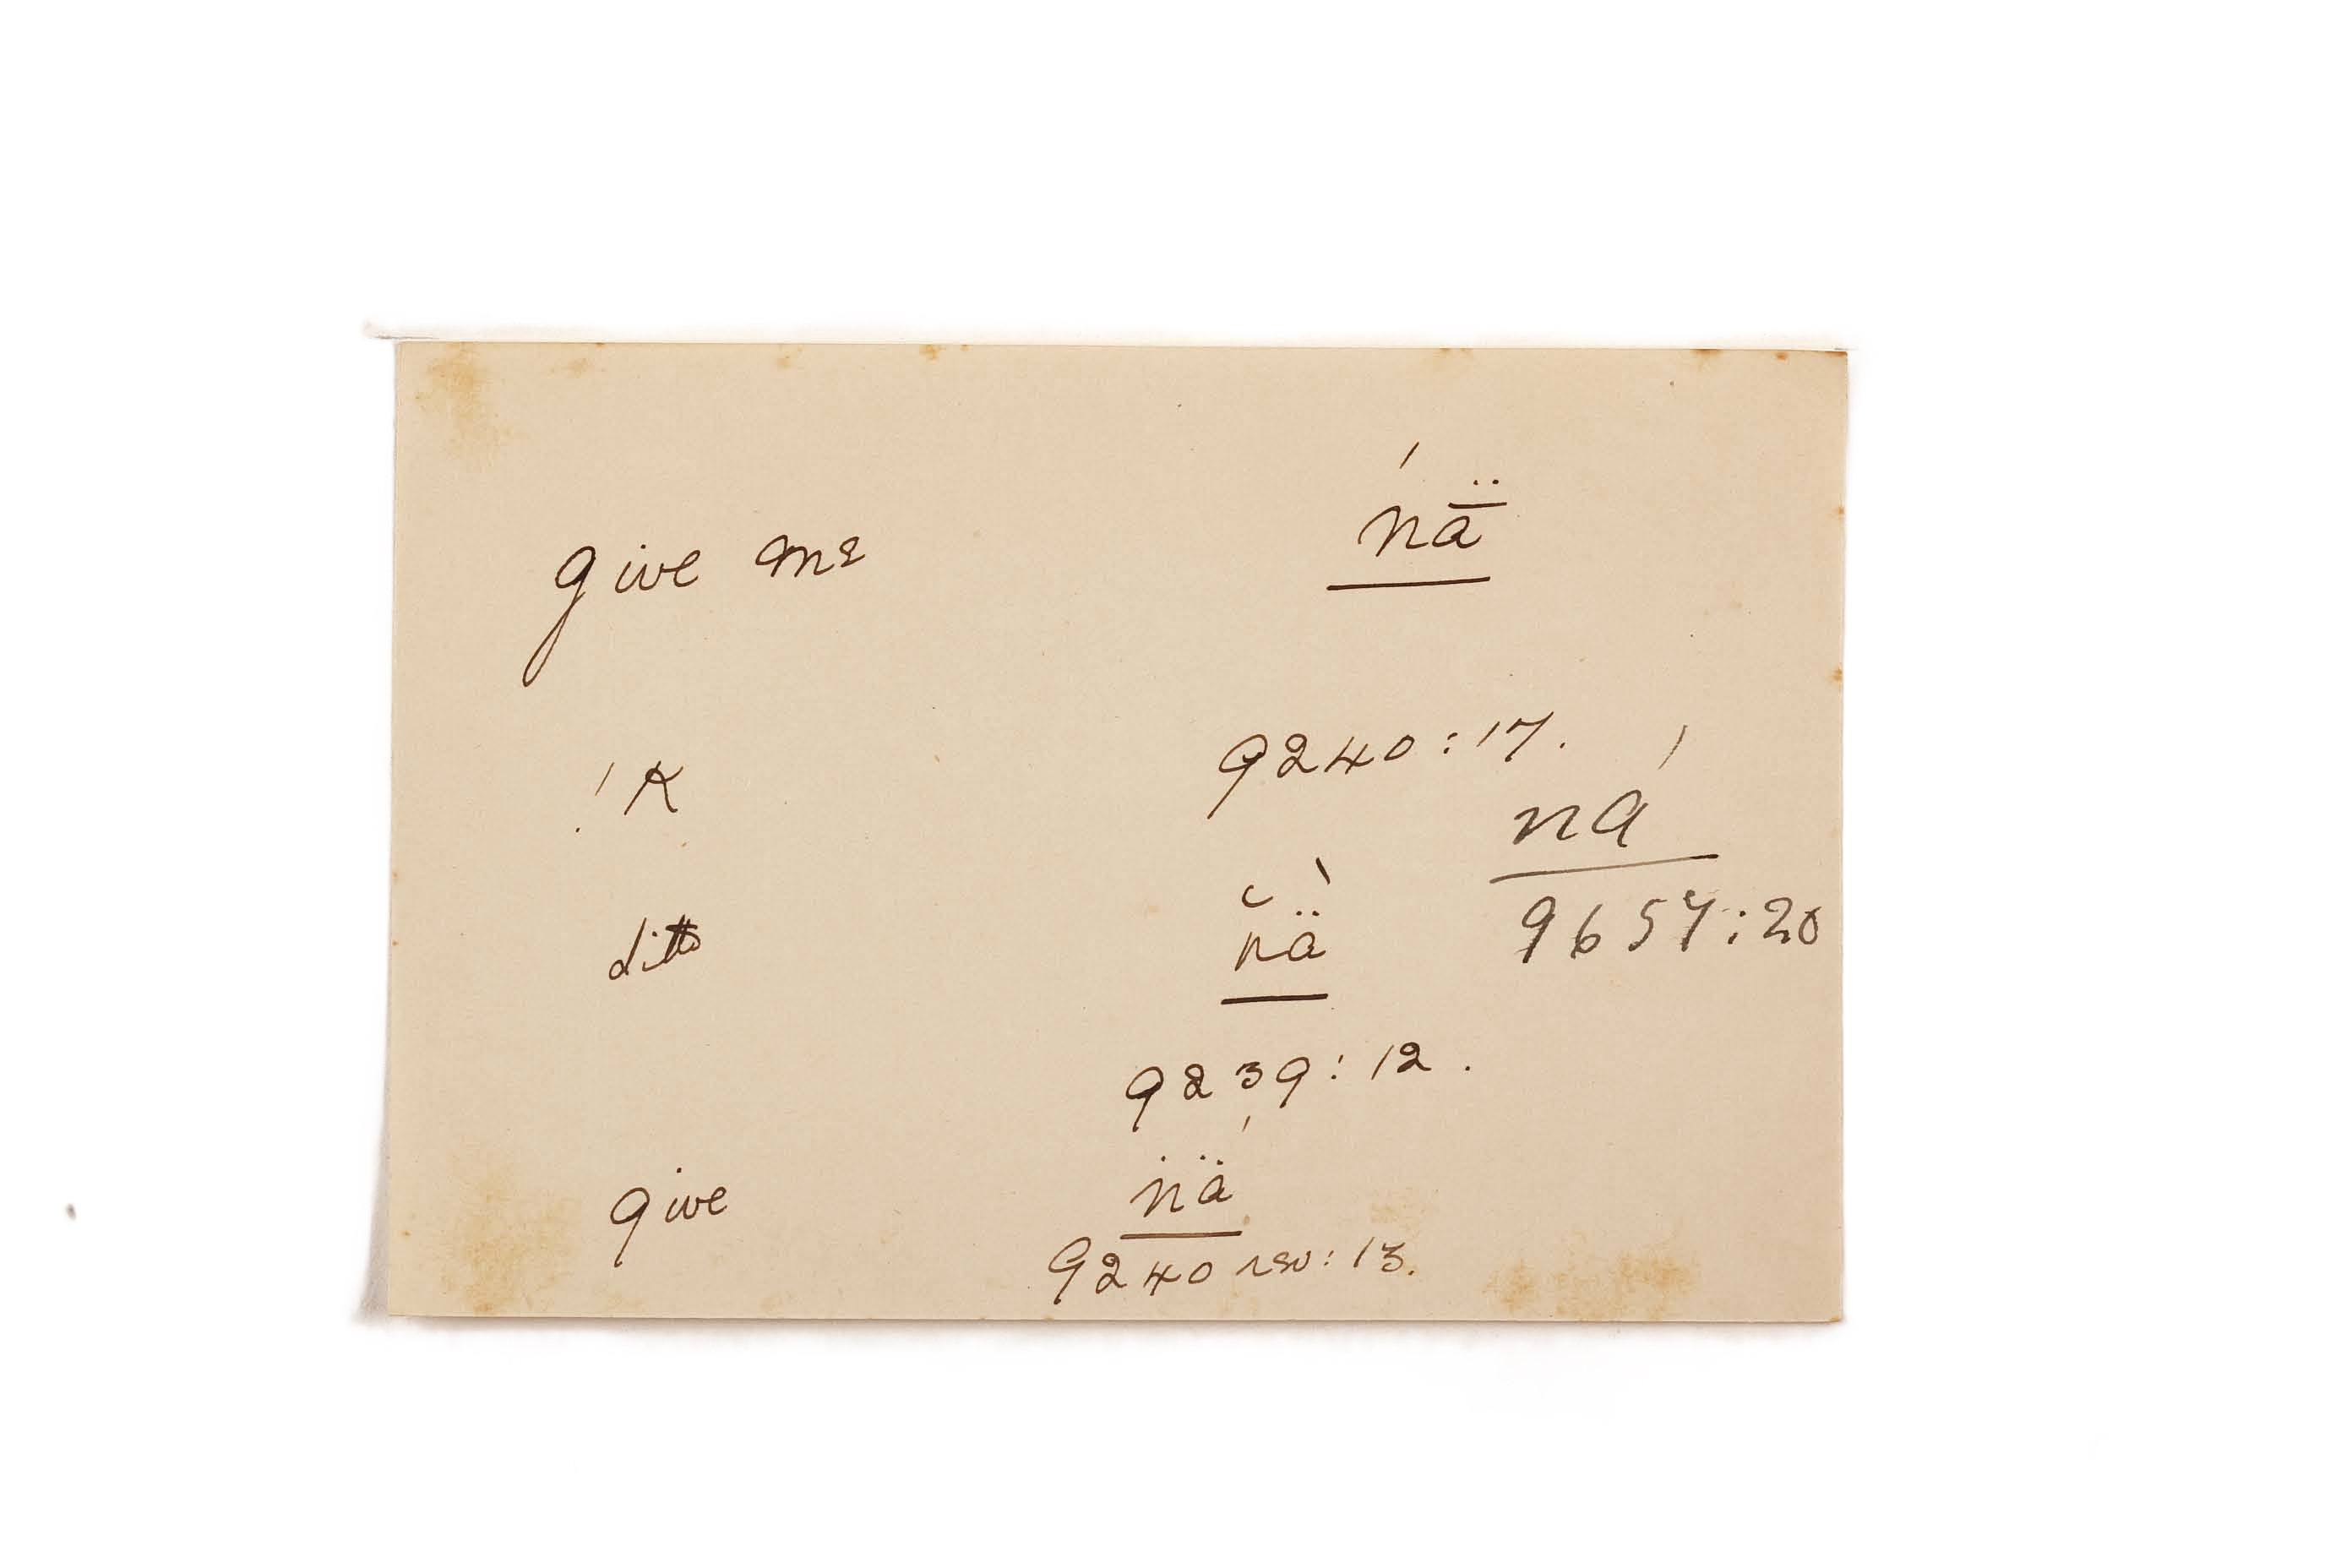 give me ńǟ
!K 9240:17.
ná
ditto n̆ä̀
9657:20
9239:12.
give ṅä́
9240 rev:13.